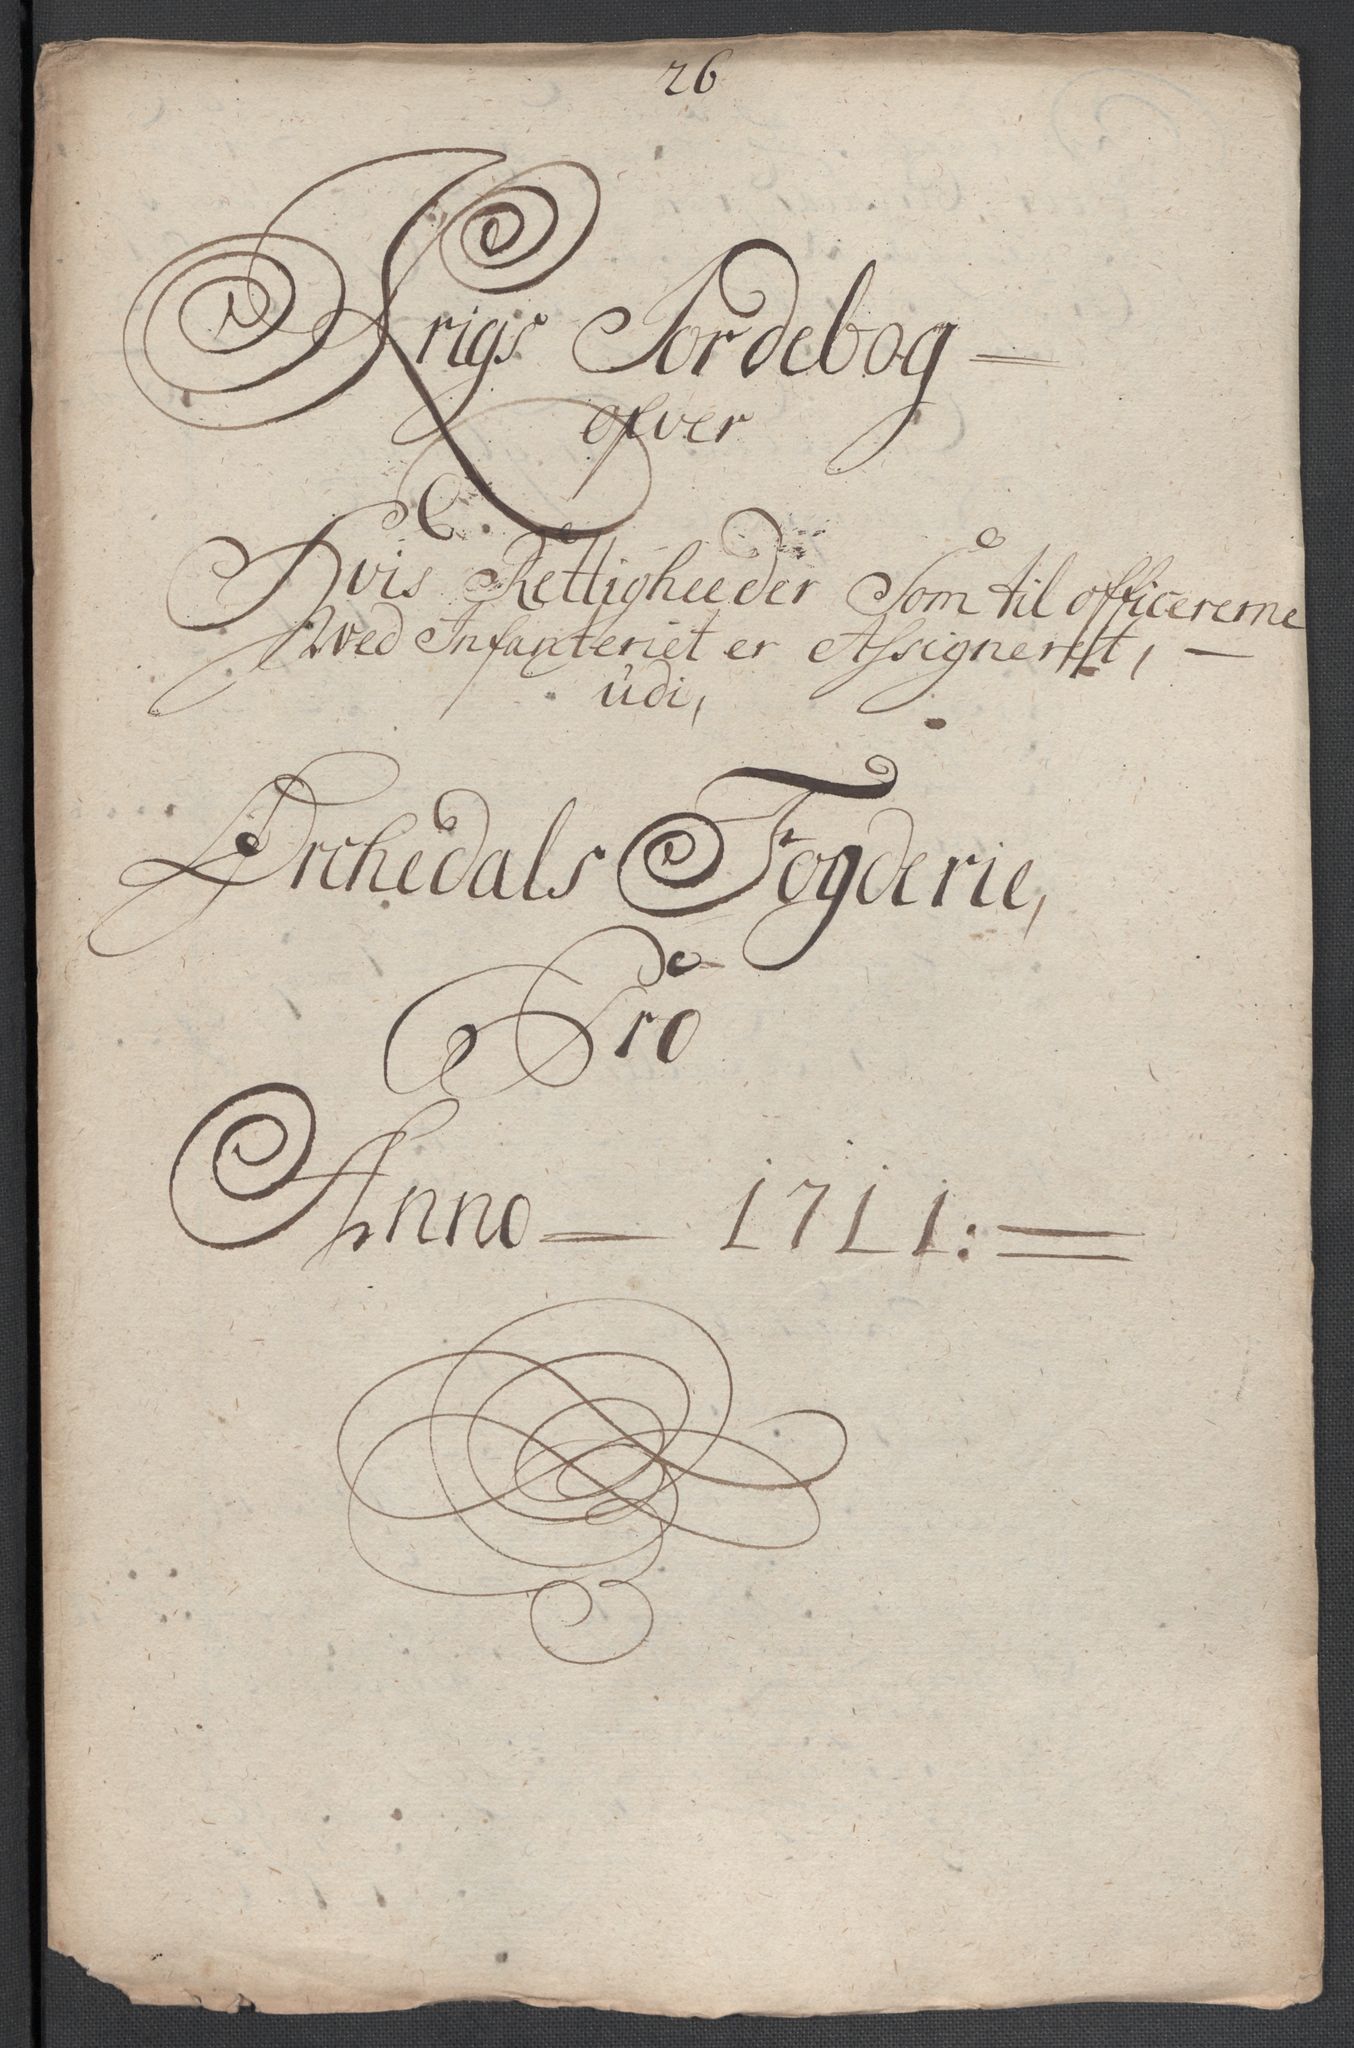 26
Krigs Jordebog —
ofver
Hvis Rettigheeder Som til officererne
Wed Infanteriet er Assigneret, —
udi,
Orchedals Fogderie,
Pro
Anno — 1711: =